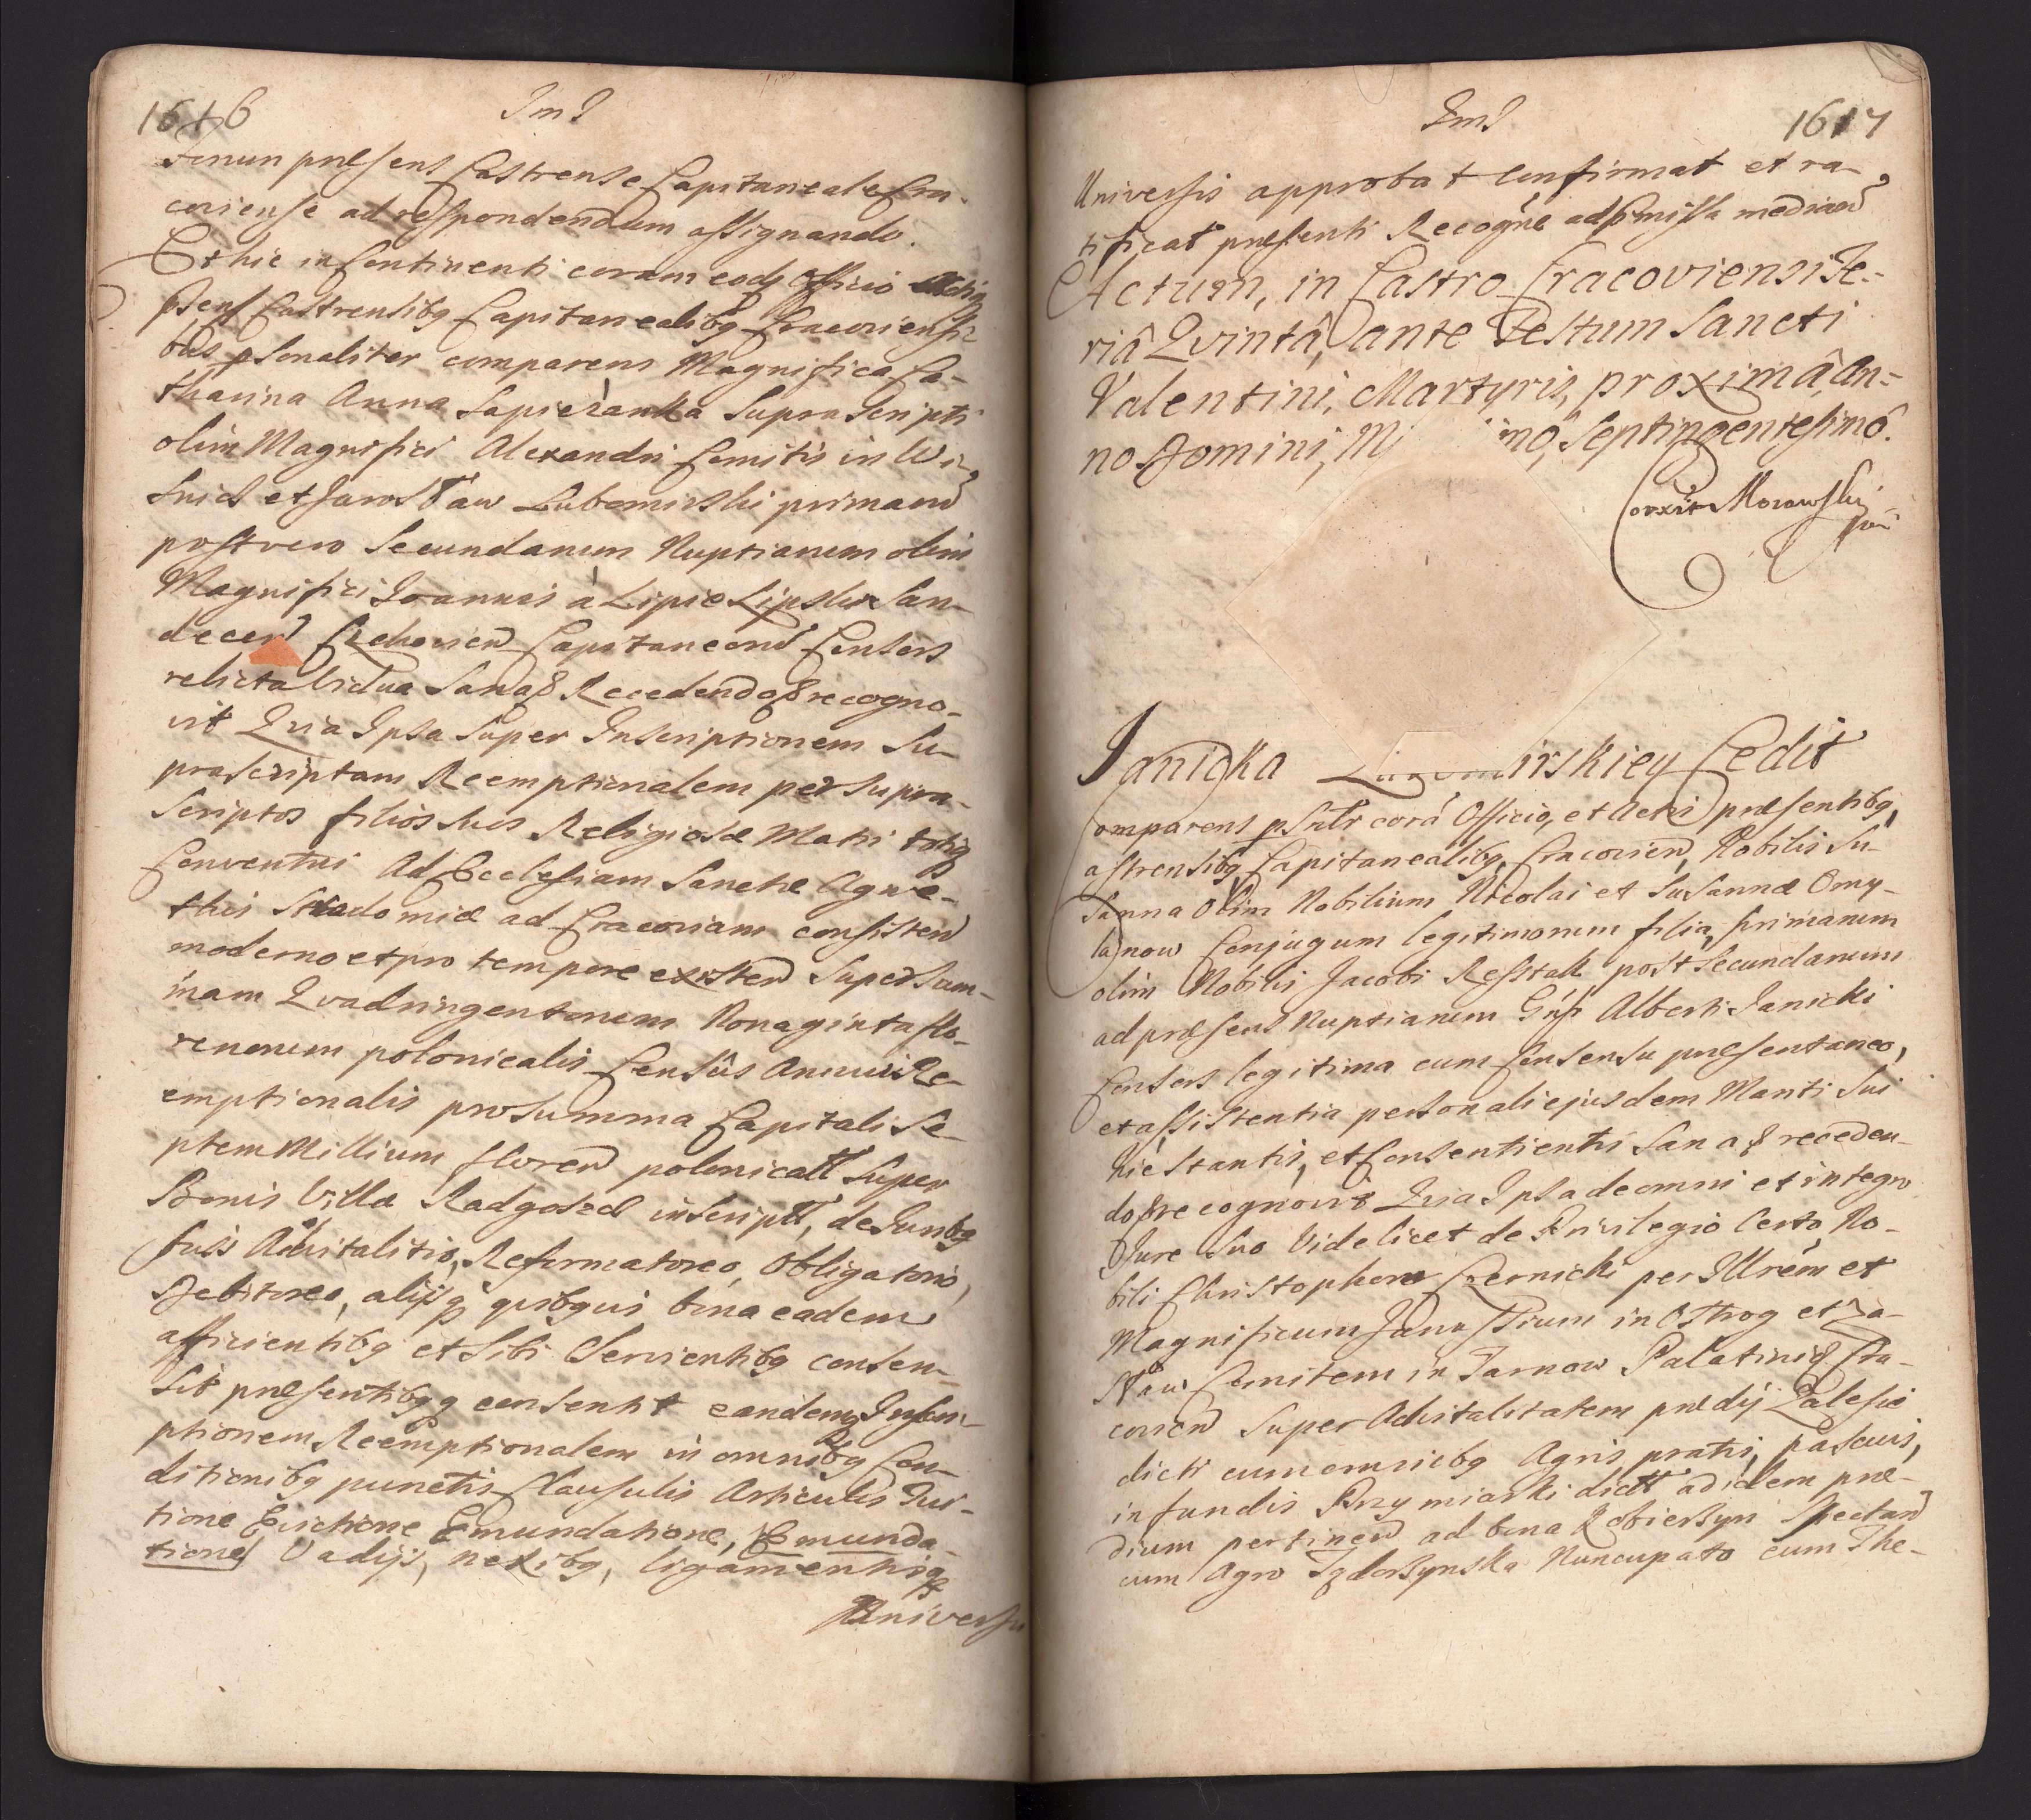 1616
JmJ
Forum præsens Castrense Capitaneale Cra-
coviense ad respondendum assignando.
Et hic in Continenti coram eodq Officio Actisq
psens Castrensibq Capitanealibq Cracoviensi-
bus psonaliter comparens Magnifica Ca-
tharina Anna Sapiezanka Supra Scripti
olim Magnifici Alexandri Comitis in Wi-
snicz et Jarosław Lubomirski primarum
post vero Secundarum Nuptiarum olim
Magnifici Joannis à Lipie Lipski San-
decen Czchovien Capitanei Consors
relicta Vidua Sana & Recedendo & recogno-
vit Qvia Ipsa Super Inscriptionem Su-
prascriptam Reemptionalem per supra-
scriptos filios suos Religiosæ Matri totiq
Conventui Ad Ecclesiam Sanctæ Agne-
this Stradomiæ ad Cracoviam consisten
moderno et pro tempore existen Super Sum-
mam Qvadringentorum Nonaginta flo-
renorum polonicalis Censûs Annui Re-
emptionalis pro Summa Capitali Se-
ptem Millium floren polonicall Super
Bonis Villæ Radgoscz inscriptt, de Juribq
suis Advitalitio, Reformatorio, Obligatorio,
Debitorio, alijsq qvibqvis bona eadem
afficientibq et Sibi Servientibq consen-
sit præsentibqq consentit eandemq Inscri-
ptionem Reemptionalem in omnibq Con-
ditionibq punctis Clausulis Articulis Tui-
tione Evictione Emundatione, Emunda-
tione Vadijs, nexibq, ligamentisq
Universis
JmJ
1617
Universis approbat confirmat et ra-
tificat præsenti Recogñe ad pmissa median
Actum, in Castro Cracoviensi Fe-
riâ Qvintâ, ante Festum Sancti
Valentini, Martyris, proximâ, An-
no Domini, M imô, Septingentesimô.
Corxit Morawski
Janicka irskiey Cedit
Comparens psnlr corâ Officio, et Actis præsentibq,
Castrensibq Capitanealibq, Cracovien, Nobilis Su-
sanna Olim Nobilium Nicolai et Susannæ Omy-
lanow Conjugum legitimorum filia, primarum
olim Nobilis Jacobi Resstak post Secundarum
ad præsens Nuptiarum Gñsi Alberti Janicki
Consors legitima cum Consensu præsentaneo,
et assistentia personali ejusdem Mariti Sui
hic stantis, et Consentientis Sana & receden-
do & recognovit Qvia Ipsa de omni et integro
Jure Suo Videlicet de Privilegio Certo, No-
bili Christophoro Czernicki per Illrem et
Magnificum Janussium in Ostrog et Za-
sław Comitem in Tarnow Palatinu Cra-
covien Super Advitalitatem prædij Zalesie
dicti cum omnibq Agris pratis, pascuis,
in fundis Przymiarki dictt ad idem præ-
dium pertinen ad bona Kobierzyn Spectan
cum Agro Izdorsynska Nuncupato cum The-